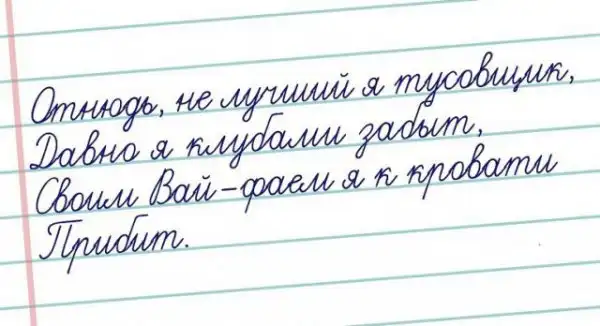 Отнюдь, не лучший я тусовщик,
Давно я клубами забыт,
Своим Вай-фаем я к кровати
Прибит.